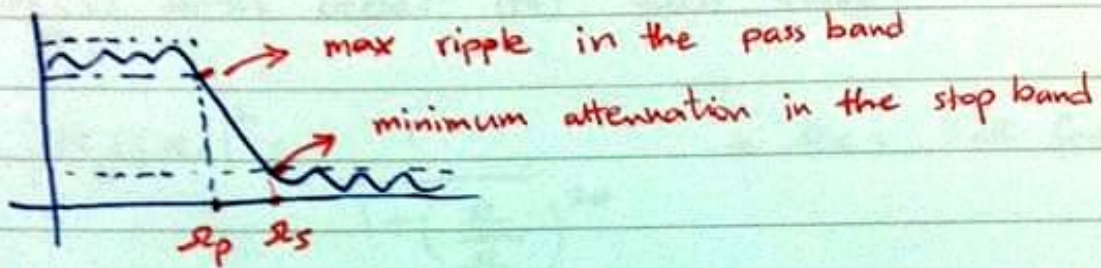 max ripple in the pass band
minimum attenuation in the stop band
Ωp Ωs